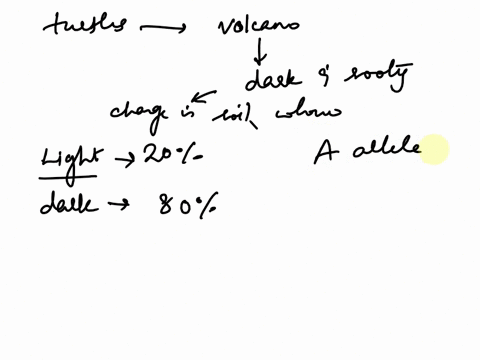 turtles → volcano
↓
dark & sooty
change in soil colour
Light → 20%
A allele
dark → 80%